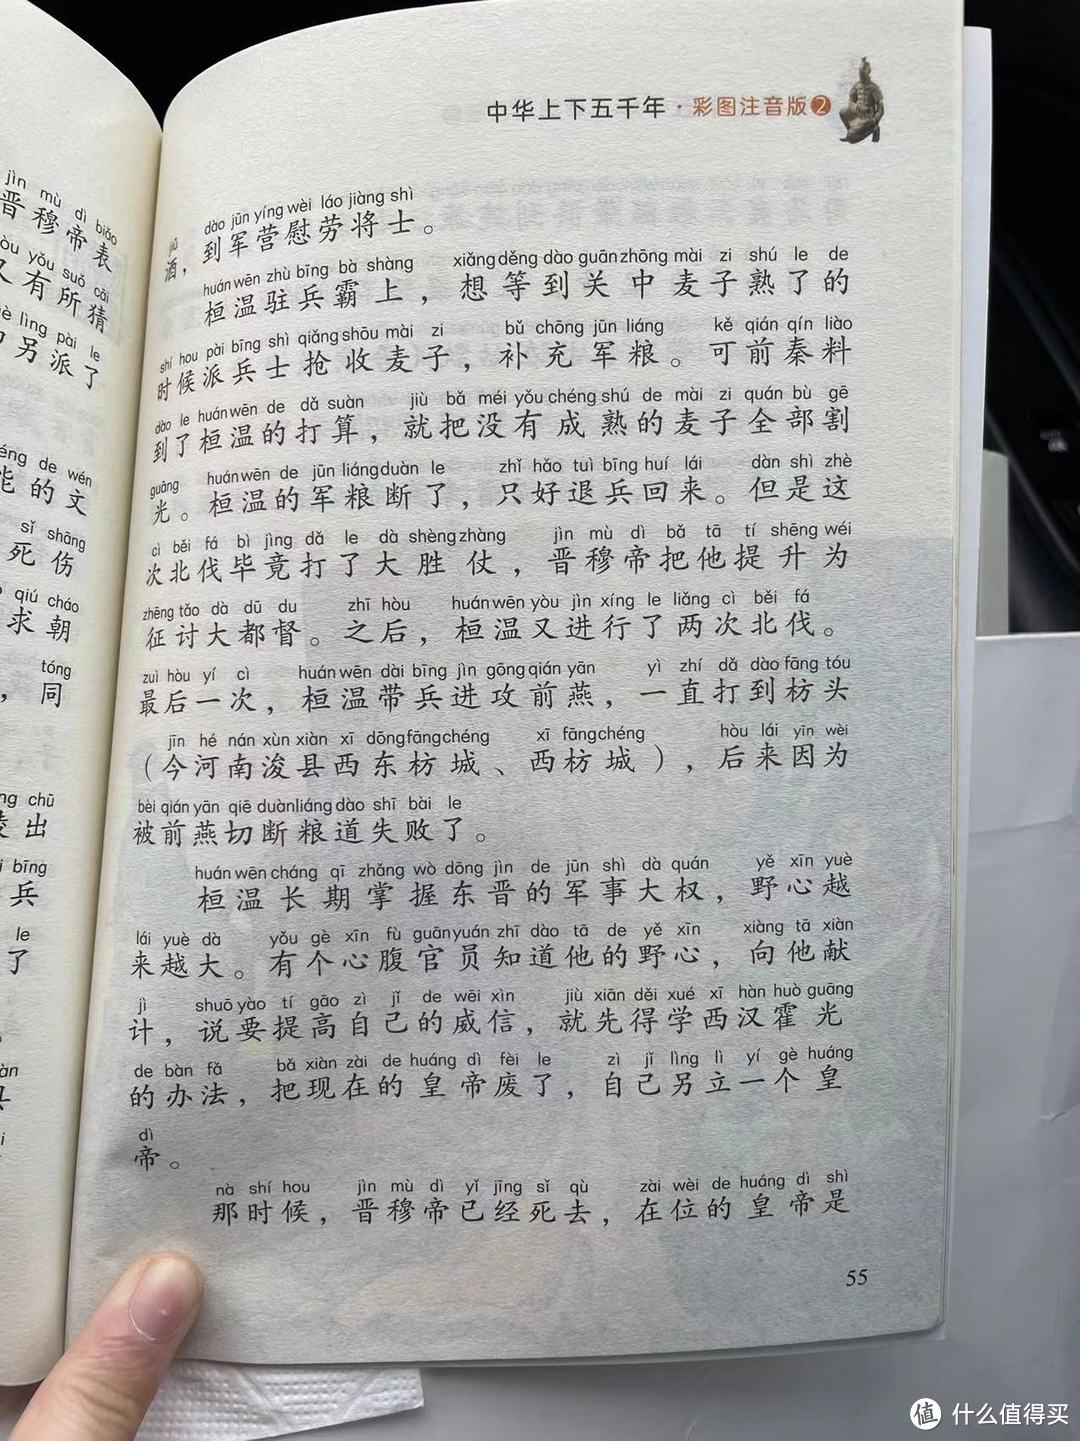 中华上下五千年·彩图注音版❷
jiǔ dào jūn yíng wèi láo jiàng shì
酒，到军营慰劳将士。
huán wēn zhù bīng bà shàng xiǎng děng dào guān zhōng mài zi shú le de
桓温驻兵霸上，想等到关中麦子熟了的
shí hou pài bīng shì qiǎng shōu mài zi bǔ chōng jūn liáng kě qián qín liào
时候派兵士抢收麦子，补充军粮。可前秦料
dào le huán wēn de dǎ suàn jiù bǎ méi yǒu chéng shú de mài zi quán bù gē
到了桓温的打算，就把没有成熟的麦子全部割
guāng huán wēn de jūn liáng duàn le zhǐ hǎo tuì bīng huí lái dàn shì zhè
光。桓温的军粮断了，只好退兵回来。但是这
cì běi fá bì jìng dǎ le dà shèng zhàng jìn mù dì bǎ tā tí shēng wéi
次北伐毕竟打了大胜仗，晋穆帝把他提升为
zhēng tǎo dà dū du zhī hòu huán wēn yòu jìn xíng le liǎng cì běi fá
征讨大都督。之后，桓温又进行了两次北伐。
zuì hòu yí cì huán wēn dài bīng jìn gōng qián yān yì zhí dǎ dào fāng tóu
最后一次，桓温带兵进攻前燕，一直打到枋头
jīn hé nán xùn xiàn xī dōng fāng chéng xī fāng chéng hòu lái yīn wèi
（今河南浚县西东枋城、西枋城），后来因为
bèi qián yān qiē duàn liáng dào shī bài le
被前燕切断粮道失败了。
huán wēn cháng qī zhǎng wò dōng jìn de jūn shì dà quán yě xīn yuè
桓温长期掌握东晋的军事大权，野心越
lái yuè dà yǒu gè xīn fù guān yuán zhī dào tā de yě xīn xiàng tā xiàn
来越大。有个心腹官员知道他的野心，向他献
jì shuō yào tí gāo zì jǐ de wēi xìn jiù xiān děi xué xī hàn huò guāng
计，说要提高自己的威信，就先得学西汉霍光
de bàn fǎ bǎ xiàn zài de huáng dì fèi le zì jǐ lìng lì yí gè huáng
的办法，把现在的皇帝废了，自己另立一个皇
dì
帝。
nà shí hou jìn mù dì yǐ jīng sǐ qù zài wèi de huáng dì shì
那时候，晋穆帝已经死去，在位的皇帝是
55
jìn mù dì biǎo
晋穆帝表
yòu yǒu suǒ cāi
又有所猜
lìng pài le
另派了
de wén
能的文
sǐ shāng
死伤
qiú cháo
求朝
tóng
，同
chū
出
bīng
兵
le
了
值 什么值得买